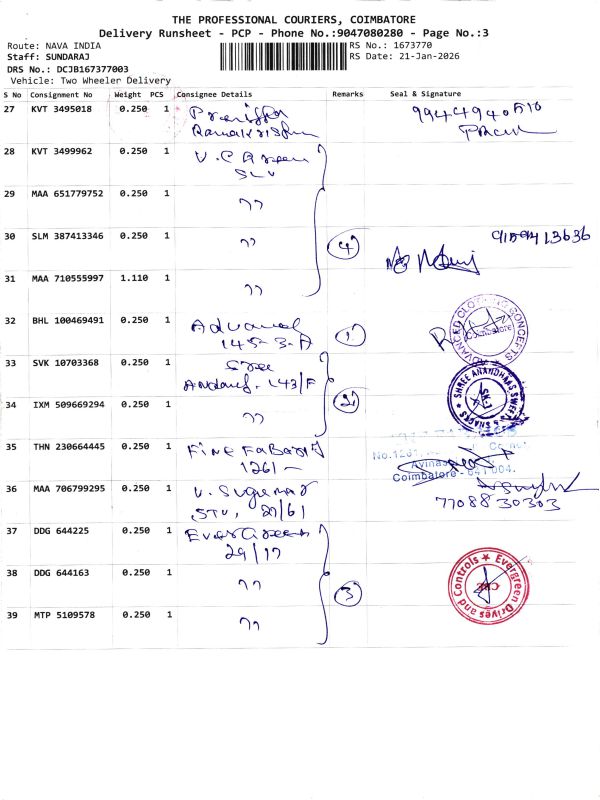 THE PROFESSIONAL COURIERS, COIMBATORE
Delivery Runsheet - PCP - Phone No.:9047080280 - Page No.:3
Route: NAVA INDIA
RS No.: 1673770
Staff: SUNDARAJ
RS Date: 21-Jan-2026
DRS No.: DCJB167377003
Vehicle: Two Wheeler Delivery
S No Consignment No Weight PCS Consignee Details Remarks Seal & Signature
27 KVT 3495018 0.250 1
28 KVT 3499962 0.250 1
29 MAA 651779752 0.250 1 "
30 SLM 387413346 0.250 1 " 4
31 MAA 710555997 1.110 1 "
32 BHL 100469491 0.250 1 1
145-3-A
ADVANCED CLOTHING CONCEPTS
Coimbatore
33 SVK 10703368 0.250 1 Sree
143/F
SHREE ANANDHAAS SWEETS & SNACKS
34 IXM 509669294 0.250 1 " 2
35 THN 230664445 0.250 1 Fine
1261
Coimbatore - 641 004.
36 MAA 706799295 0.250 1 V. Sugumar
7708830303
37 DDG 644225 0.250 1 Evergreen
29/17
Evergreen Drives and Controls
CBE
38 DDG 644163 0.250 1 " 3
39 MTP 5109578 0.250 1 "